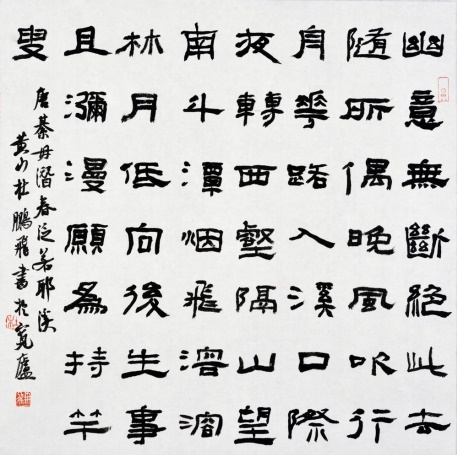 幽意無斷絕此去
隨所偶晚風吹行
舟華路入溪口際
夜轉西壑隔山望
南斗潭烟飛溶溶
林月低向後生事
且瀰漫願為持竿
叟
唐綦毋潛春泛若耶溪
黄山杜鵬飛書於寬廬